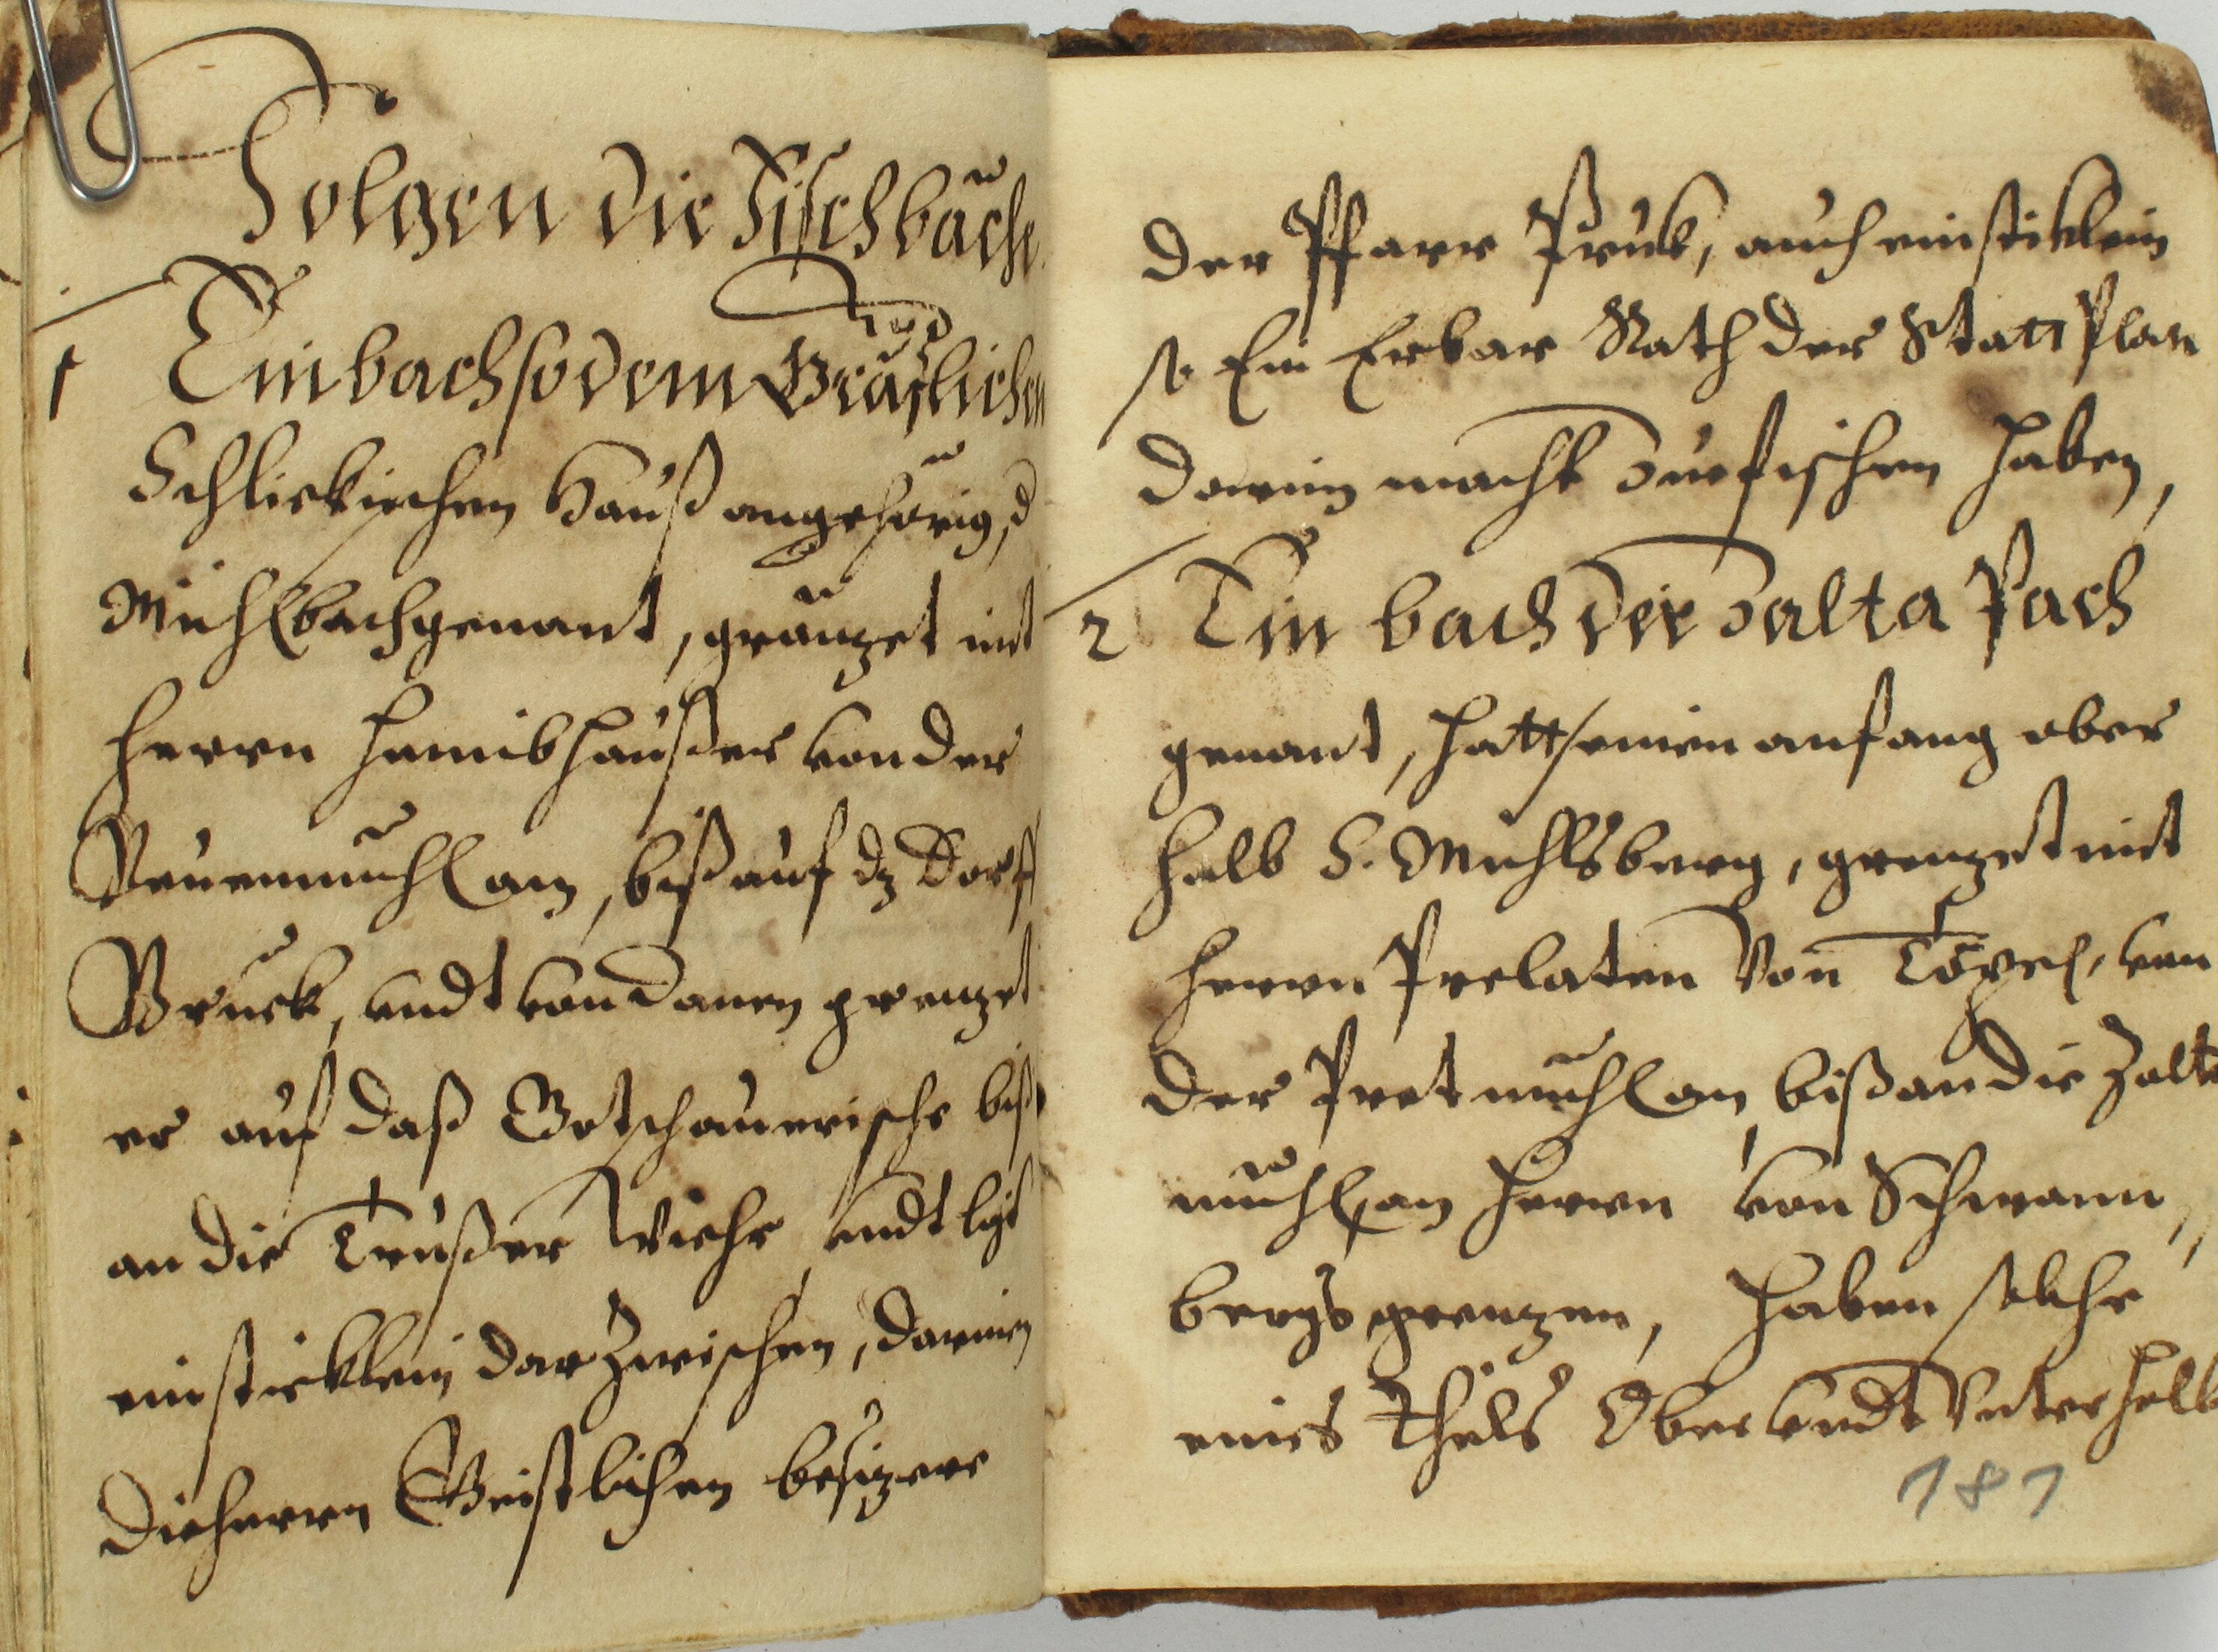 Folgen die Fischbäche
1 Ein bach so dem Gräflichen
Schlickischen Hauß angehörig, d
Mühlbach genant, gränzet mit
herrn haußer von der
Neuenmühl an, biß auf dz Dorff
Bruck, undt von danen grenzet
er auf daß Gotschauerische biß
an die Treußer Wiehr, undt ligt
ein sticklein darzwischen, darinen
die herrn Geistlichen besizere
der Pfarr Pruk, auch ein stiklein
so Ein Erbar Rath der Statt Plan
darein macht zue fischen haben,
2 Ein bach die Zalta Pach
genant, hatt seinen anfang ober
halb S. Michlsberg, grenzet mit
herrn Prelaten Von Töpel, von
der Pretmühl an, biß an die Zalta
mühl, an herrn von Schwann,,
bergs grenzen, haben solche
eines Theils Ober undt Unterhalb
181